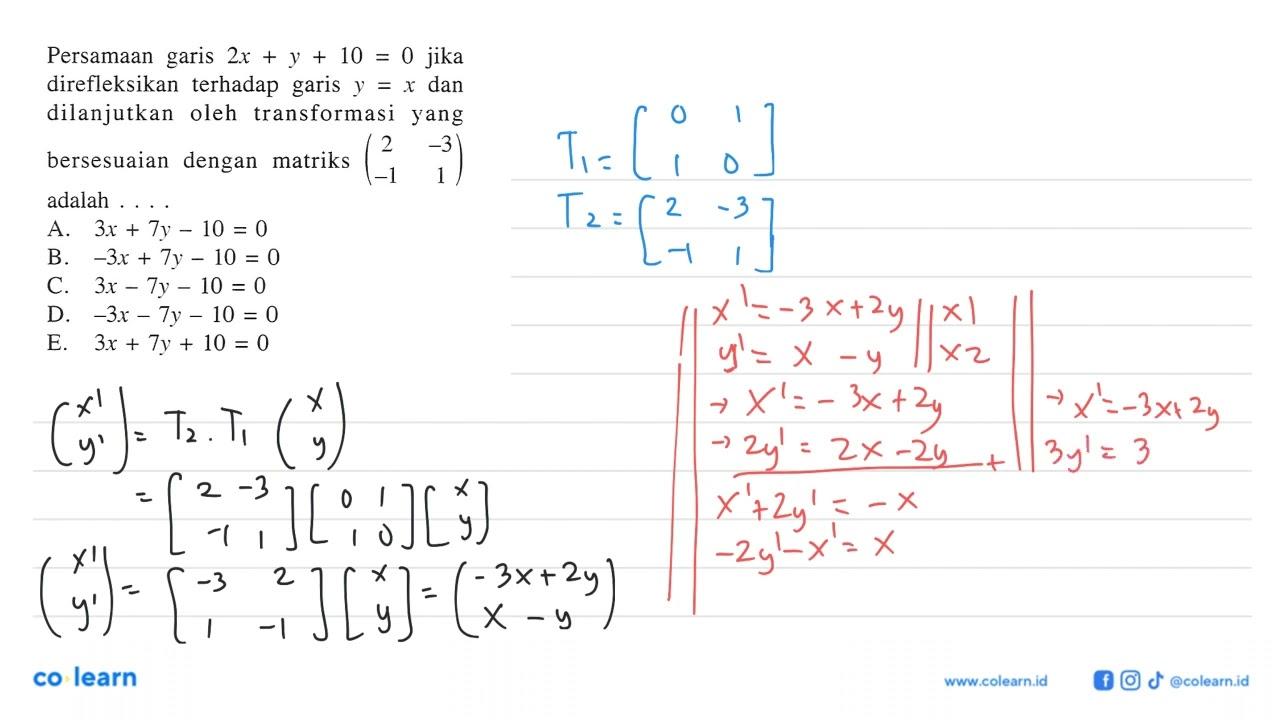 Persamaan garis 2x + y + 10 = 0 jika
direfleksikan terhadap garis y = x dan
dilanjutkan oleh transformasi yang
bersesuaian dengan matriks (2 -3
-1 1)
adalah . . . .
A. 3x + 7y – 10 = 0
B. –3x + 7y – 10 = 0
C. 3x – 7y – 10 = 0
D. –3x – 7y – 10 = 0
E. 3x + 7y + 10 = 0
(x'
y') = T2 . T1 (x
y)
= [2 -3
-1 1] [0 1
1 0] [x
y]
(x'
y') = [-3 2
1 -1] [x
y] = (-3x+2y
x - y)
T1 = [0 1
1 0]
T2 = [2 -3
-1 1]
x' = -3x+2y || x1
y' = x - y || x2
→ x' = -3x+2y
→ 2y' = 2x-2y +
x'+2y' = -x
-2y'-x' = x
→ x'=-3x+2y
3y' = 3
co learn
www.colearn.id
@colearn.id